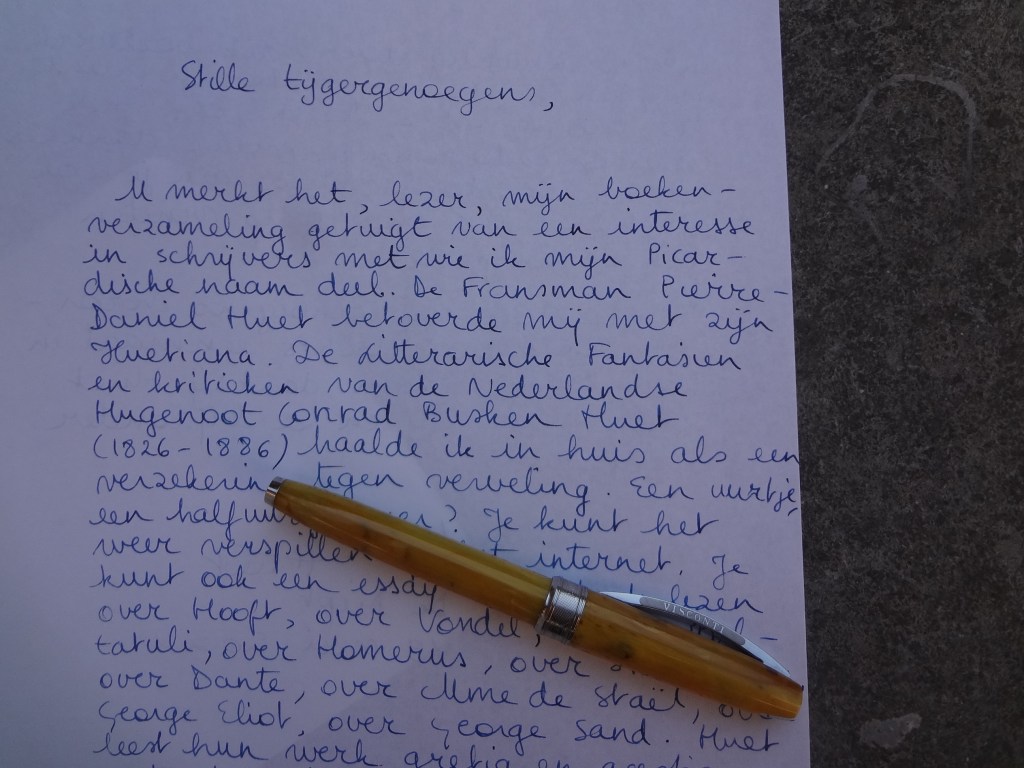 Stille tijgergenoegens,
U merkt het, lezer, mijn boeken-
verzameling getuigt van een interesse
in schrijvers met wie ik mijn Picar-
dische naam deel. De Fransman Pierre-
Daniel Huet betoverde mij met zijn
Huetiana. De Litterarische Fantasien
en kritieken van de Nederlandse
Hugenoot Conrad Busken Huet
(1826-1886) haalde ik in huis als een
tegen verveling. Een uurtje,
een ? Je kunt het
weer verspillen internet. Je
kunt ook een essay lezen
over Hooft, over Vondel,
tatuli, over Homerus, over
over Dante, over Mme de Staël,
George Eliot, over George Sand. Huet
leest hun werk gretig en
VISCONTI